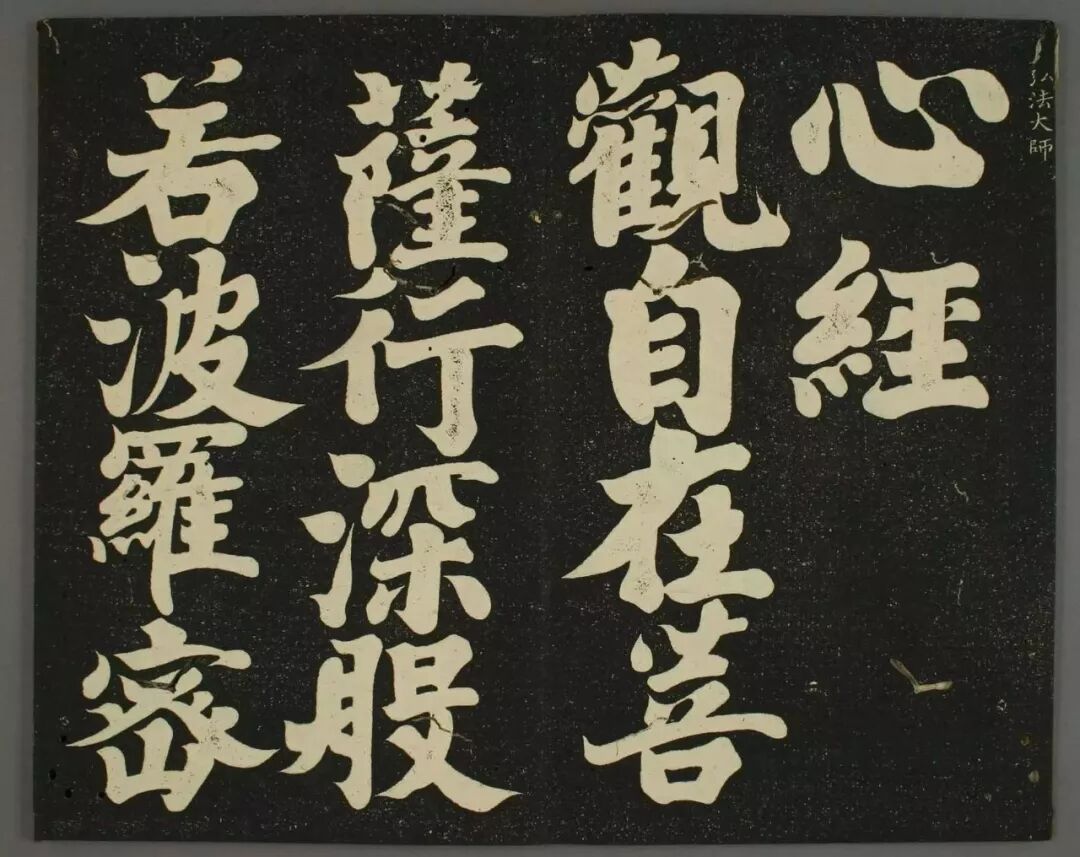 弘法大師
心經
觀自在菩
薩行深般
若波羅密